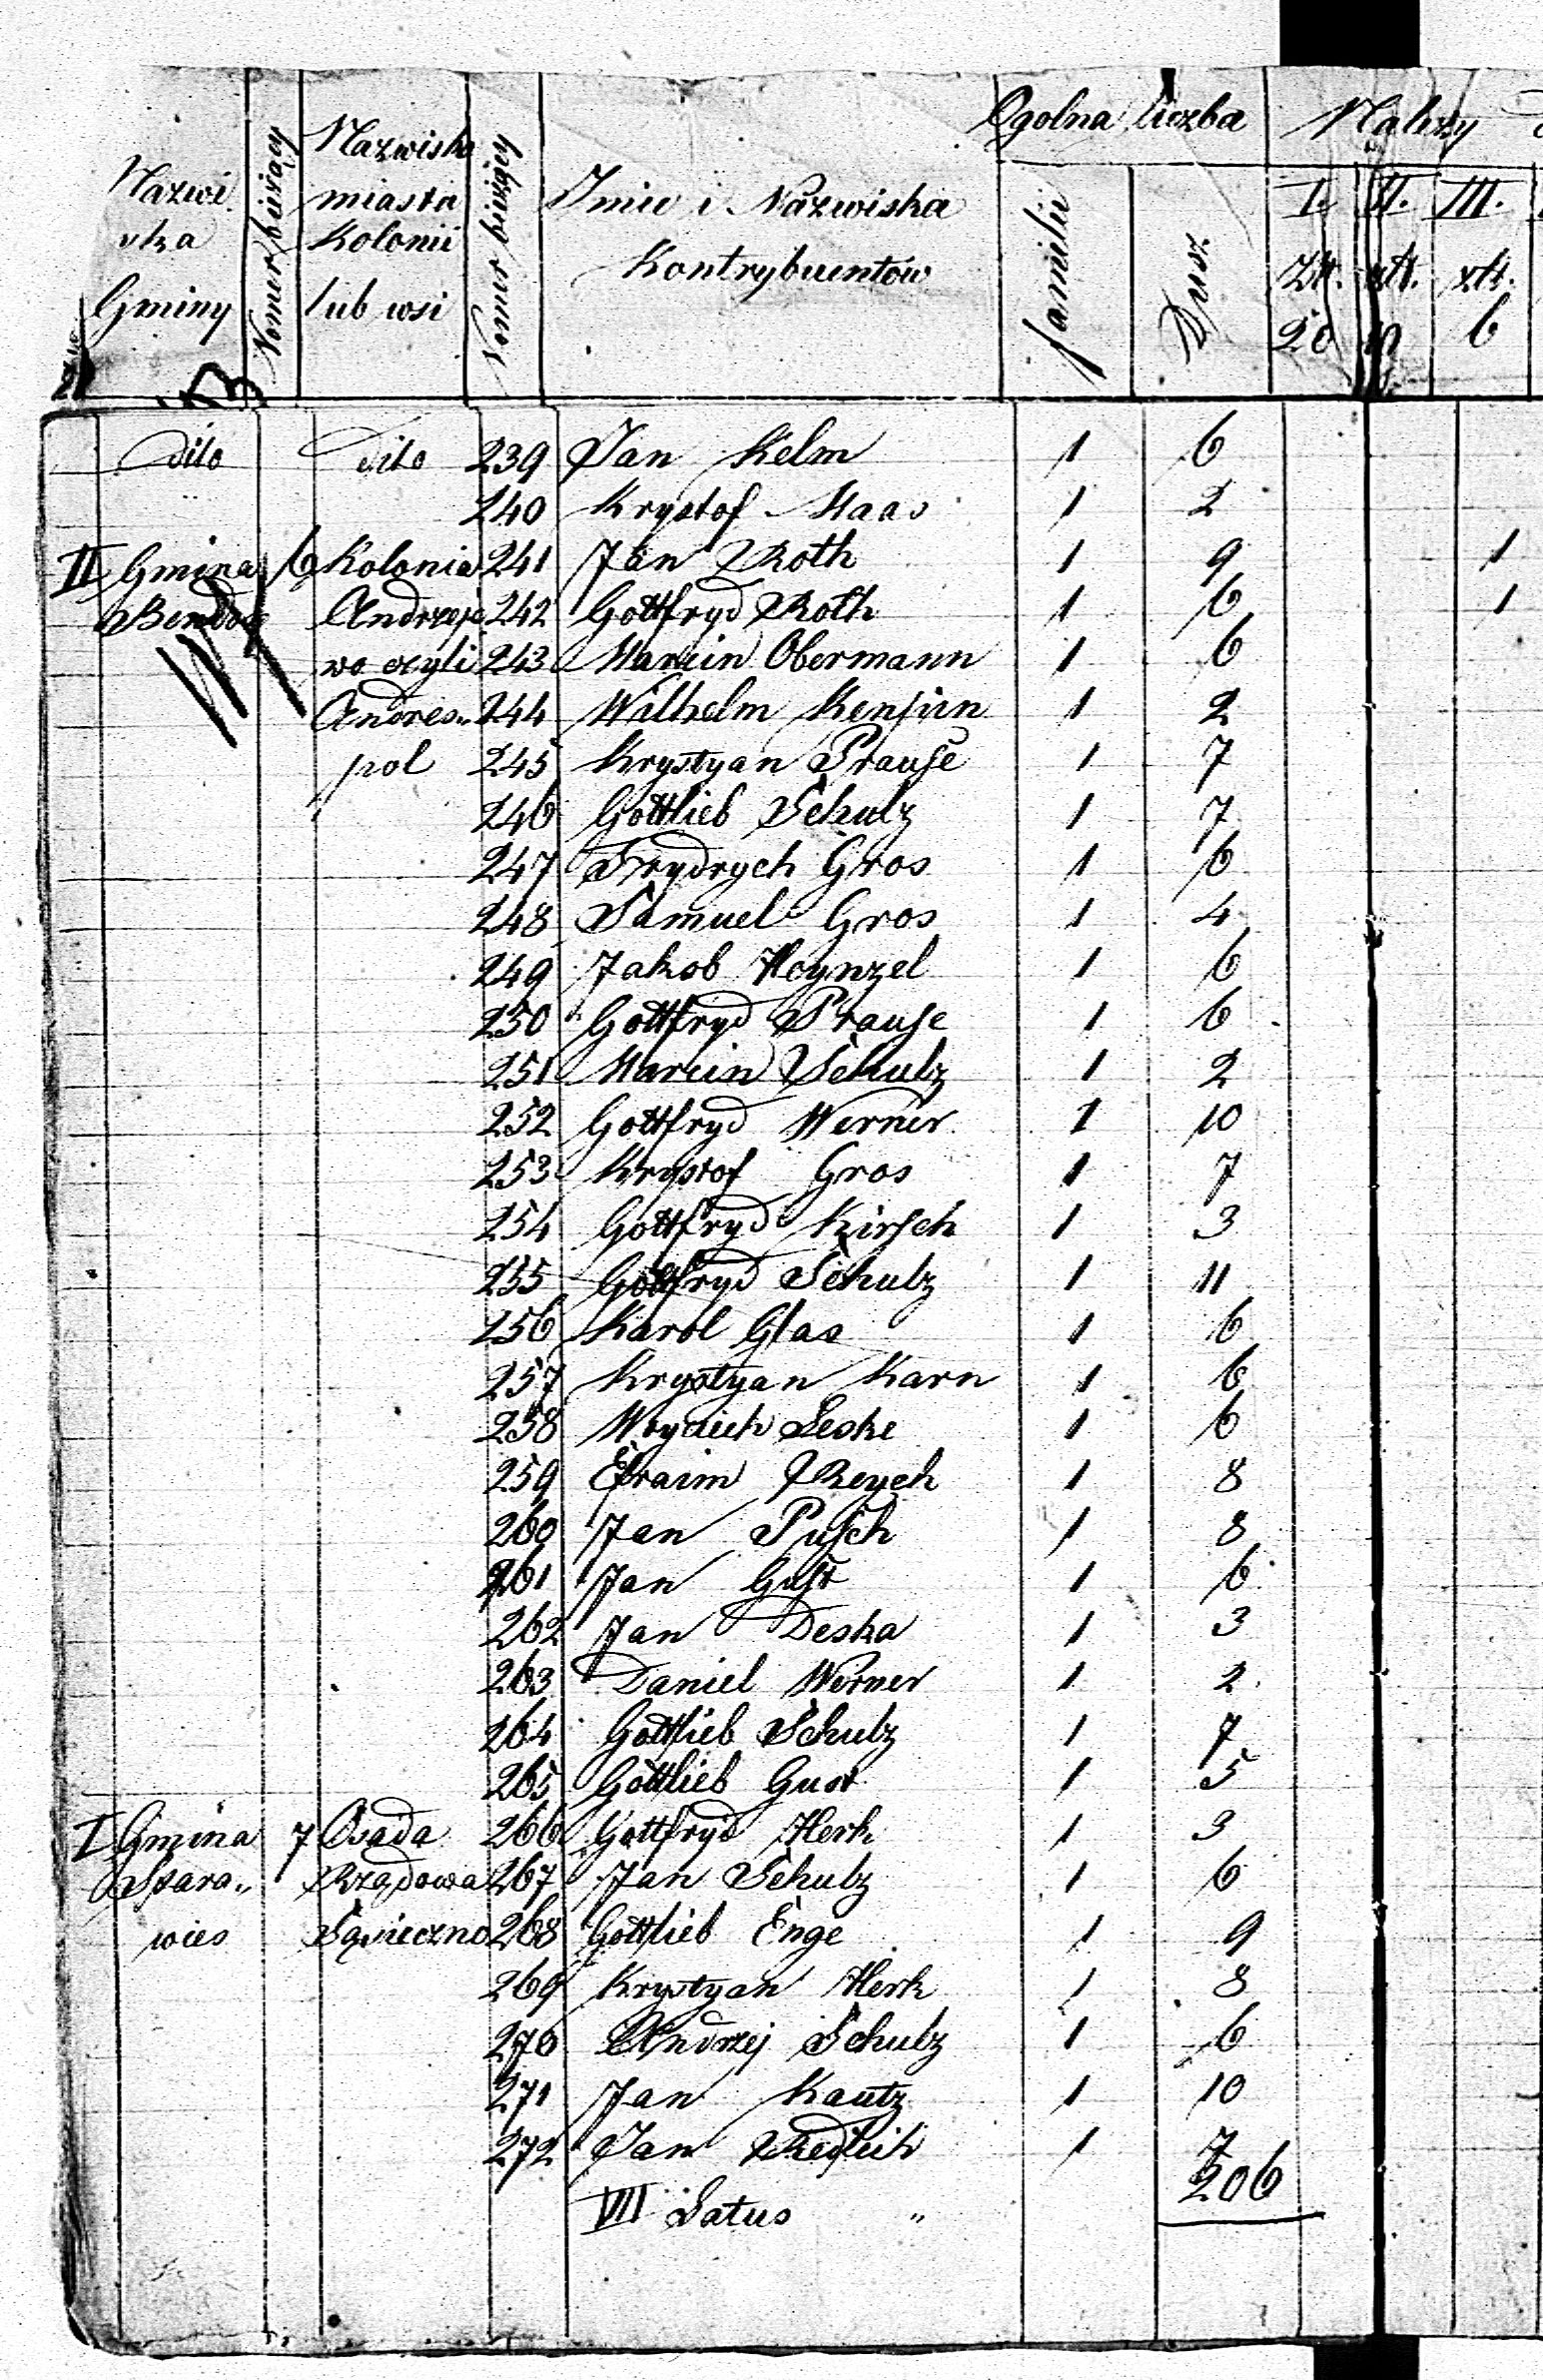 Nazwiska Gminy
Nomer bieżący
Nazwiska miasta Kolonii lub wsi
Nomer bieżący
Imie i Nazwiska Kontrybuentów
Ogolna liczba
familii
Dusz
Należy
I. II. III.
Zł. złt. złt.
20 6
dito dito 239 Jan Kelm 1 6
240 Krystof Maas 1 2
II Gmina 6 Kolonia 241 Jan Roth 1 9 1
Bendow Andrzejo 242 Gottfryd Roth 1 6 1
wo czyli 243 Marcin Obermann 1 6
Andres„ 244 Wilhelm Kenjün 1 2
pol 245 Krystyan Prauſe 1 7
246 Gottlieb Schulz 1 7
247 Frydrych Gros 1 6
248 Samuel Gros 1 4
249 Jakob Hoynzel 1 6
250 Gottfryd Prauſe 1 6
251 Marcin Schulz 1 2
252 Gottfryd Werner 1 10
253 Krystof Gros 1 7
254 Gottfryd Kirſch 1 3
255 Gottfryd Schulz 1 11
256 Karol Glas 1 6
257 Krystyan Karn 1 6
258 Woyciech Leske 1 6
259 Efraim Reych 1 8
260 Jan Puſch 1 8
261 Jan Guſt 1 6
262 Jan Deska 1 3
263 Daniel Werner 1 2
264 Gottlieb Schulz 1 7
265 Gottlieb Gust 1 5
I Gmina 7 Osada 266 Gottfryd Herk 1 3
Stara„ Rządowa 267 Jan Schulz 1 6
wies Łąwieczno 268 Gottlieb Enge 1 9
269 Krystyan Herk 1 8
270 Andrzej Schulz 1 6
271 Jan Kautz 1 10
272 Jan 1 7
VII Latus „ 206